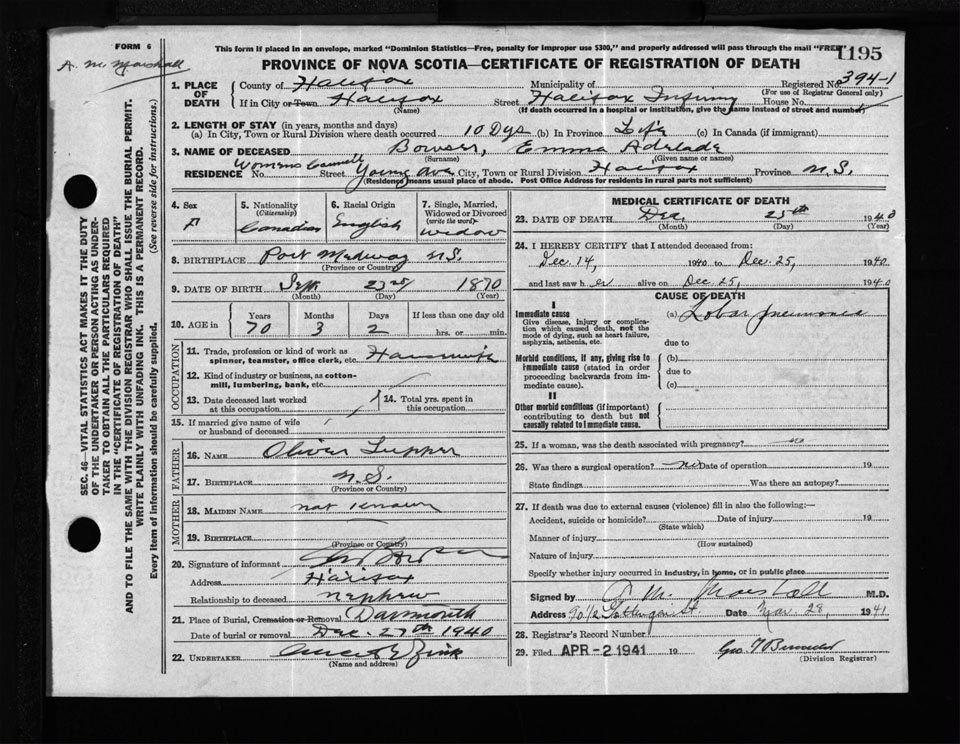 FORM 6
A. M. Marshall
This form if placed in an envelope, marked "Dominion Statistics—Free, penalty for improper use $300," and properly addressed will pass through the mail "FREE"
1195
PROVINCE OF NOVA SCOTIA—CERTIFICATE OF REGISTRATION OF DEATH
1. PLACE OF DEATH
County of Halifax Municipality of Registered No. 394-1
(For use of Registrar General only)
If in City or Town Halifax Street Halifax Infirmy House No.
(Name) (If death occurred in a hospital or institution, give the name instead of street and number)
2. LENGTH OF STAY (in years, months and days)
(a) In City, Town or Rural Division where death occurred 10 Dys (b) In Province Life (c) In Canada (if immigrant)
3. NAME OF DECEASED Bowser, Emma Adelade
(Surname) (Given name or names)
RESIDENCE No. Womens Council Street Young Ave City, Town or Rural Division Halifax Province N.S.
(Residence means usual place of abode. Post Office Address for residents in rural parts not sufficient)
4. Sex
F
5. Nationality
(Citizenship)
Canadian
6. Racial Origin
English
7. Single, Married, Widowed or Divorced
(write the word)
Widow
8. BIRTHPLACE Port Medway N.S.
(Province or Country)
9. DATE OF BIRTH Sept 23rd 1870
(Month) (Day) (Year)
10. AGE in
Years Months Days If less than one day old
70 3 2 hrs. or min.
OCCUPATION
11. Trade, profession or kind of work as spinner, teamster, office clerk, etc. Housewife
12. Kind of industry or business, as cotton-mill, lumbering, bank, etc.
13. Date deceased last worked at this occupation
14. Total yrs. spent in this occupation
15. If married give name of wife or husband of deceased
FATHER
16. NAME Oliver Tupper
17. BIRTHPLACE N.S.
(Province or Country)
MOTHER
18. MAIDEN NAME not known
19. BIRTHPLACE
(Province or Country)
20. Signature of informant
Address Halifax
Relationship to deceased nephew
21. Place of Burial, Cremation or Removal Darmouth
Date of burial or removal Dec. 27th 1940
22. UNDERTAKER Zink
(Name and address)
MEDICAL CERTIFICATE OF DEATH
23. DATE OF DEATH Dec 25th 1940
(Month) (Day) (Year)
24. I HEREBY CERTIFY that I attended deceased from:
Dec. 14, 1940 to Dec. 25, 1940
and last saw her alive on Dec 25, 1940
CAUSE OF DEATH
I
Immediate cause
Give disease, injury or complication which caused death, not the mode of dying, such as heart failure, asphyxia, asthenia, etc.
(a) Lobar pneumonia
due to
Morbid conditions, if any, giving rise to immediate cause (stated in order proceeding backwards from immediate cause).
(b)
due to
(c)
II
Other morbid conditions (if important) contributing to death but not causally related to immediate cause.
25. If a woman, was the death associated with pregnancy? no
26. Was there a surgical operation? no Date of operation 19
State findings Was there an autopsy?
27. If death was due to external causes (violence) fill in also the following:—
Accident, suicide or homicide? Date of injury 19
(State which)
Manner of injury
(How sustained)
Nature of injury
Specify whether injury occurred in industry, in home, or in public place
Signed by A. M. Marshall M.D.
Address 90 1/2 Gottingen St Date Mar. 28, 1941
28. Registrar's Record Number
29. Filed APR - 2 1941 19
(Division Registrar)
SEC. 46—VITAL STATISTICS ACT MAKES IT THE DUTY
OF THE UNDERTAKER OR PERSON ACTING AS UNDER-
TAKER TO OBTAIN ALL THE PARTICULARS REQUIRED
IN THE "CERTIFICATE OF REGISTRATION OF DEATH"
AND TO FILE THE SAME WITH THE DIVISION REGISTRAR WHO SHALL ISSUE THE BURIAL PERMIT.
WRITE PLAINLY WITH UNFADING INK. THIS IS A PERMANENT RECORD.
Every item of information should be carefully supplied. (See reverse side for instructions.)